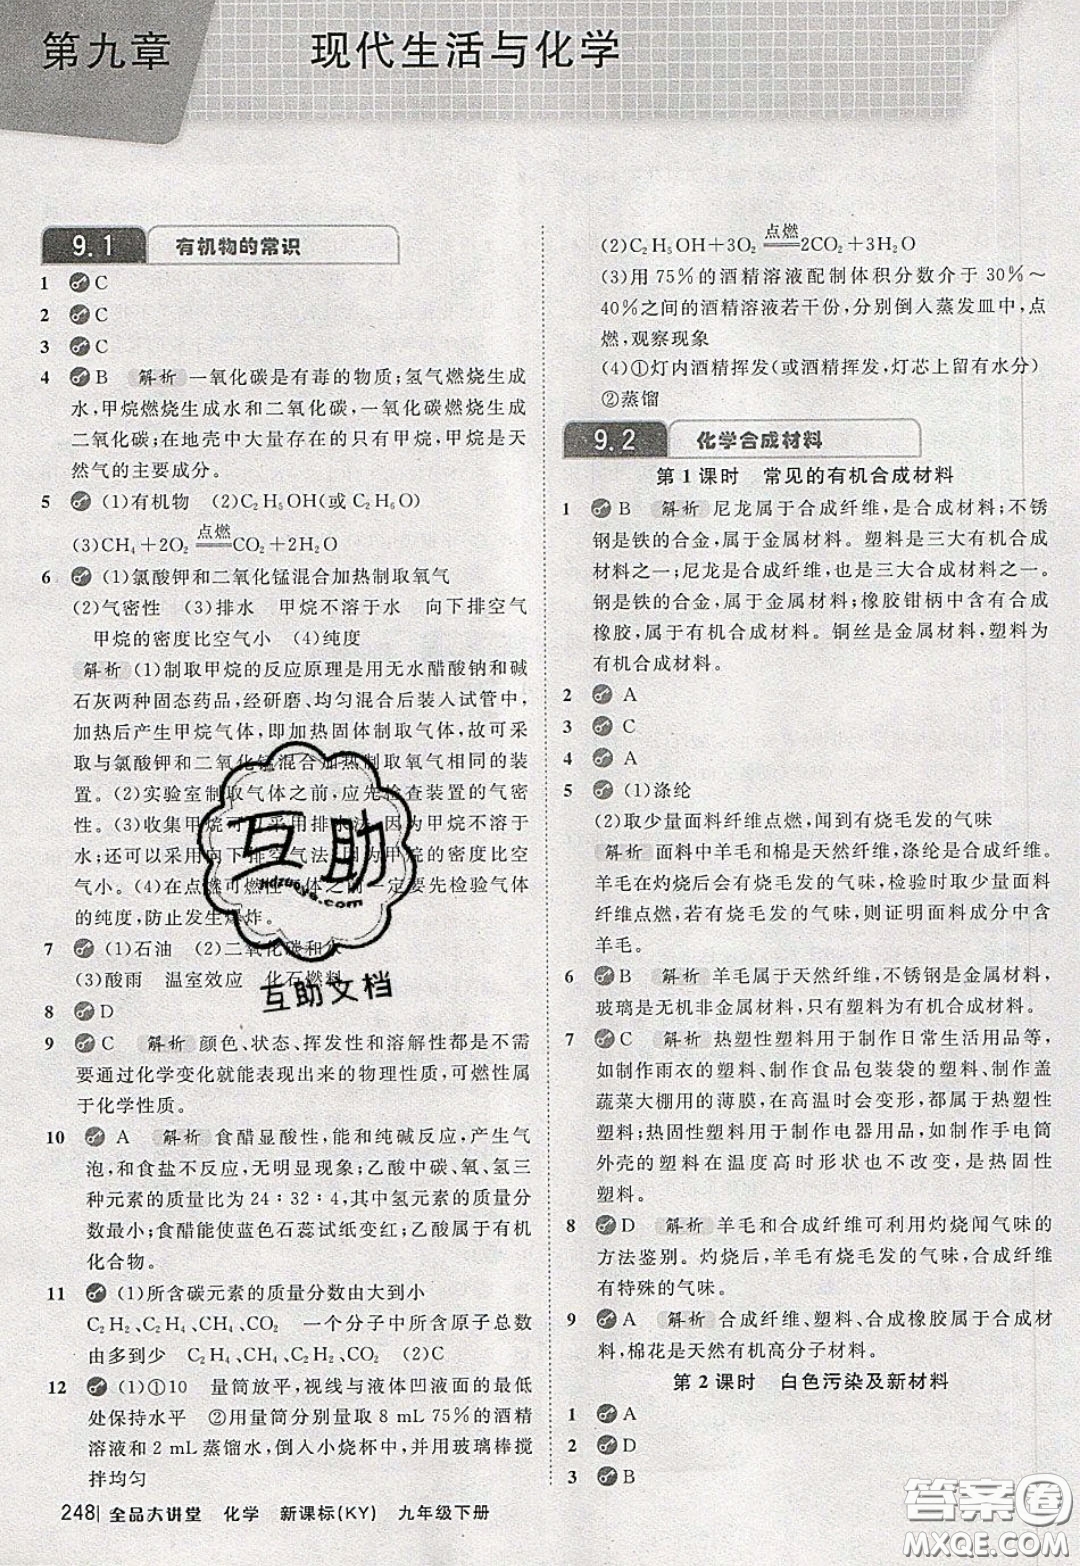 第九章 现代生活与化学
9.1 有机物的常识
1 C
2 C
3 C
4 B 解析 一氧化碳是有毒的物质;氢气燃烧生成
水,甲烷燃烧生成水和二氧化碳,一氧化碳燃烧生成
二氧化碳;在地壳中大量存在的只有甲烷,甲烷是天
然气的主要成分。
5 (1)有机物 (2)C₂H₅OH(或C₂H₆O)
(3)CH₄+2O₂ 点燃 CO₂+2H₂O
6 (1)氯酸钾和二氧化锰混合加热制取氧气
(2)气密性 (3)排水 甲烷不溶于水 向下排空气
甲烷的密度比空气小 (4)纯度
解析 (1)制取甲烷的反应原理是用无水醋酸钠和碱
石灰两种固态药品,经研磨、均匀混合后装入试管中,
加热后产生甲烷气体,即加热固体制取气体,故可采
取与氯酸钾和二氧化锰混合加热制取氧气相同的装
置。(2)实验室制取气体之前,应先检查装置的气密
性。(3)收集甲烷可以采用排水法,因为甲烷不溶于
水;还可以采用向下排空气法,因为甲烷的密度比空
气小。(4)在点燃可燃性气体之前一定要先检验气体
的纯度,防止发生爆炸。
7 (1)石油 (2)二氧化碳和水
(3)酸雨 温室效应 化石燃料
8 D
9 C 解析 颜色、状态、挥发性和溶解性都是不需
要通过化学变化就能表现出来的物理性质,可燃性属
于化学性质。
10 A 解析 食醋显酸性,能和纯碱反应,产生气
泡,和食盐不反应,无明显现象;乙酸中碳、氧、氢三
种元素的质量比为24∶32∶4,其中氢元素的质量分
数最小;食醋能使蓝色石蕊试纸变红;乙酸属于有机
化合物。
11 (1)所含碳元素的质量分数由大到小
C₂H₂、C₂H₄、CH₄、CO₂ 一个分子中所含原子总数
由多到少 C₂H₄、CH₄、C₂H₂、CO₂ (2)C
12 (1)①10 量筒放平,视线与液体凹液面的最低
处保持水平 ②用量筒分别量取8 mL 75%的酒精
溶液和2 mL蒸馏水,倒入小烧杯中,并用玻璃棒搅
拌均匀
(2)C₂H₅OH+3O₂ 点燃 2CO₂+3H₂O
(3)用75%的酒精溶液配制体积分数介于30%~
40%之间的酒精溶液若干份,分别倒入蒸发皿中,点
燃,观察现象
(4)①灯内酒精挥发(或酒精挥发,灯芯上留有水分)
②蒸馏
9.2 化学合成材料
第1课时 常见的有机合成材料
1 B 解析 尼龙属于合成纤维,是合成材料;不锈
钢是铁的合金,属于金属材料。塑料是三大有机合成
材料之一;尼龙是合成纤维,也是三大合成材料之一。
钢是铁的合金,属于金属材料;橡胶钳柄中含有合成
橡胶,属于有机合成材料。铜丝是金属材料,塑料为
有机合成材料。
2 A
3 C
4 A
5 (1)涤纶
(2)取少量面料纤维点燃,闻到有烧毛发的气味
解析 面料中羊毛和棉是天然纤维,涤纶是合成纤维。
羊毛在灼烧后会有烧毛发的气味,检验时取少量面料
纤维点燃,若有烧毛发的气味,则证明面料成分中含
羊毛。
6 B 解析 羊毛属于天然纤维,不锈钢是金属材料,
玻璃是无机非金属材料,只有塑料为有机合成材料。
7 C 解析 热塑性塑料用于制作日常生活用品等,
如制作雨衣的塑料、制作食品包装袋的塑料、制作盖
蔬菜大棚用的薄膜,在高温时会变形,都属于热塑性
塑料;热固性塑料用于制作电器用品,如制作手电筒
外壳的塑料在温度高时形状也不改变,是热固性
塑料。
8 D 解析 羊毛和合成纤维可利用灼烧闻气味的
方法鉴别。灼烧后,羊毛有烧毛发的气味,合成纤维
有特殊的气味。
9 A 解析 合成纤维、塑料、合成橡胶属于合成材
料,棉花是天然有机高分子材料。
第2课时 白色污染及新材料
1 A
2 D
3 B
248 全品大讲堂 化学 新课标(KY) 九年级下册
互助
互助文档
答案圈
MXQE.COM